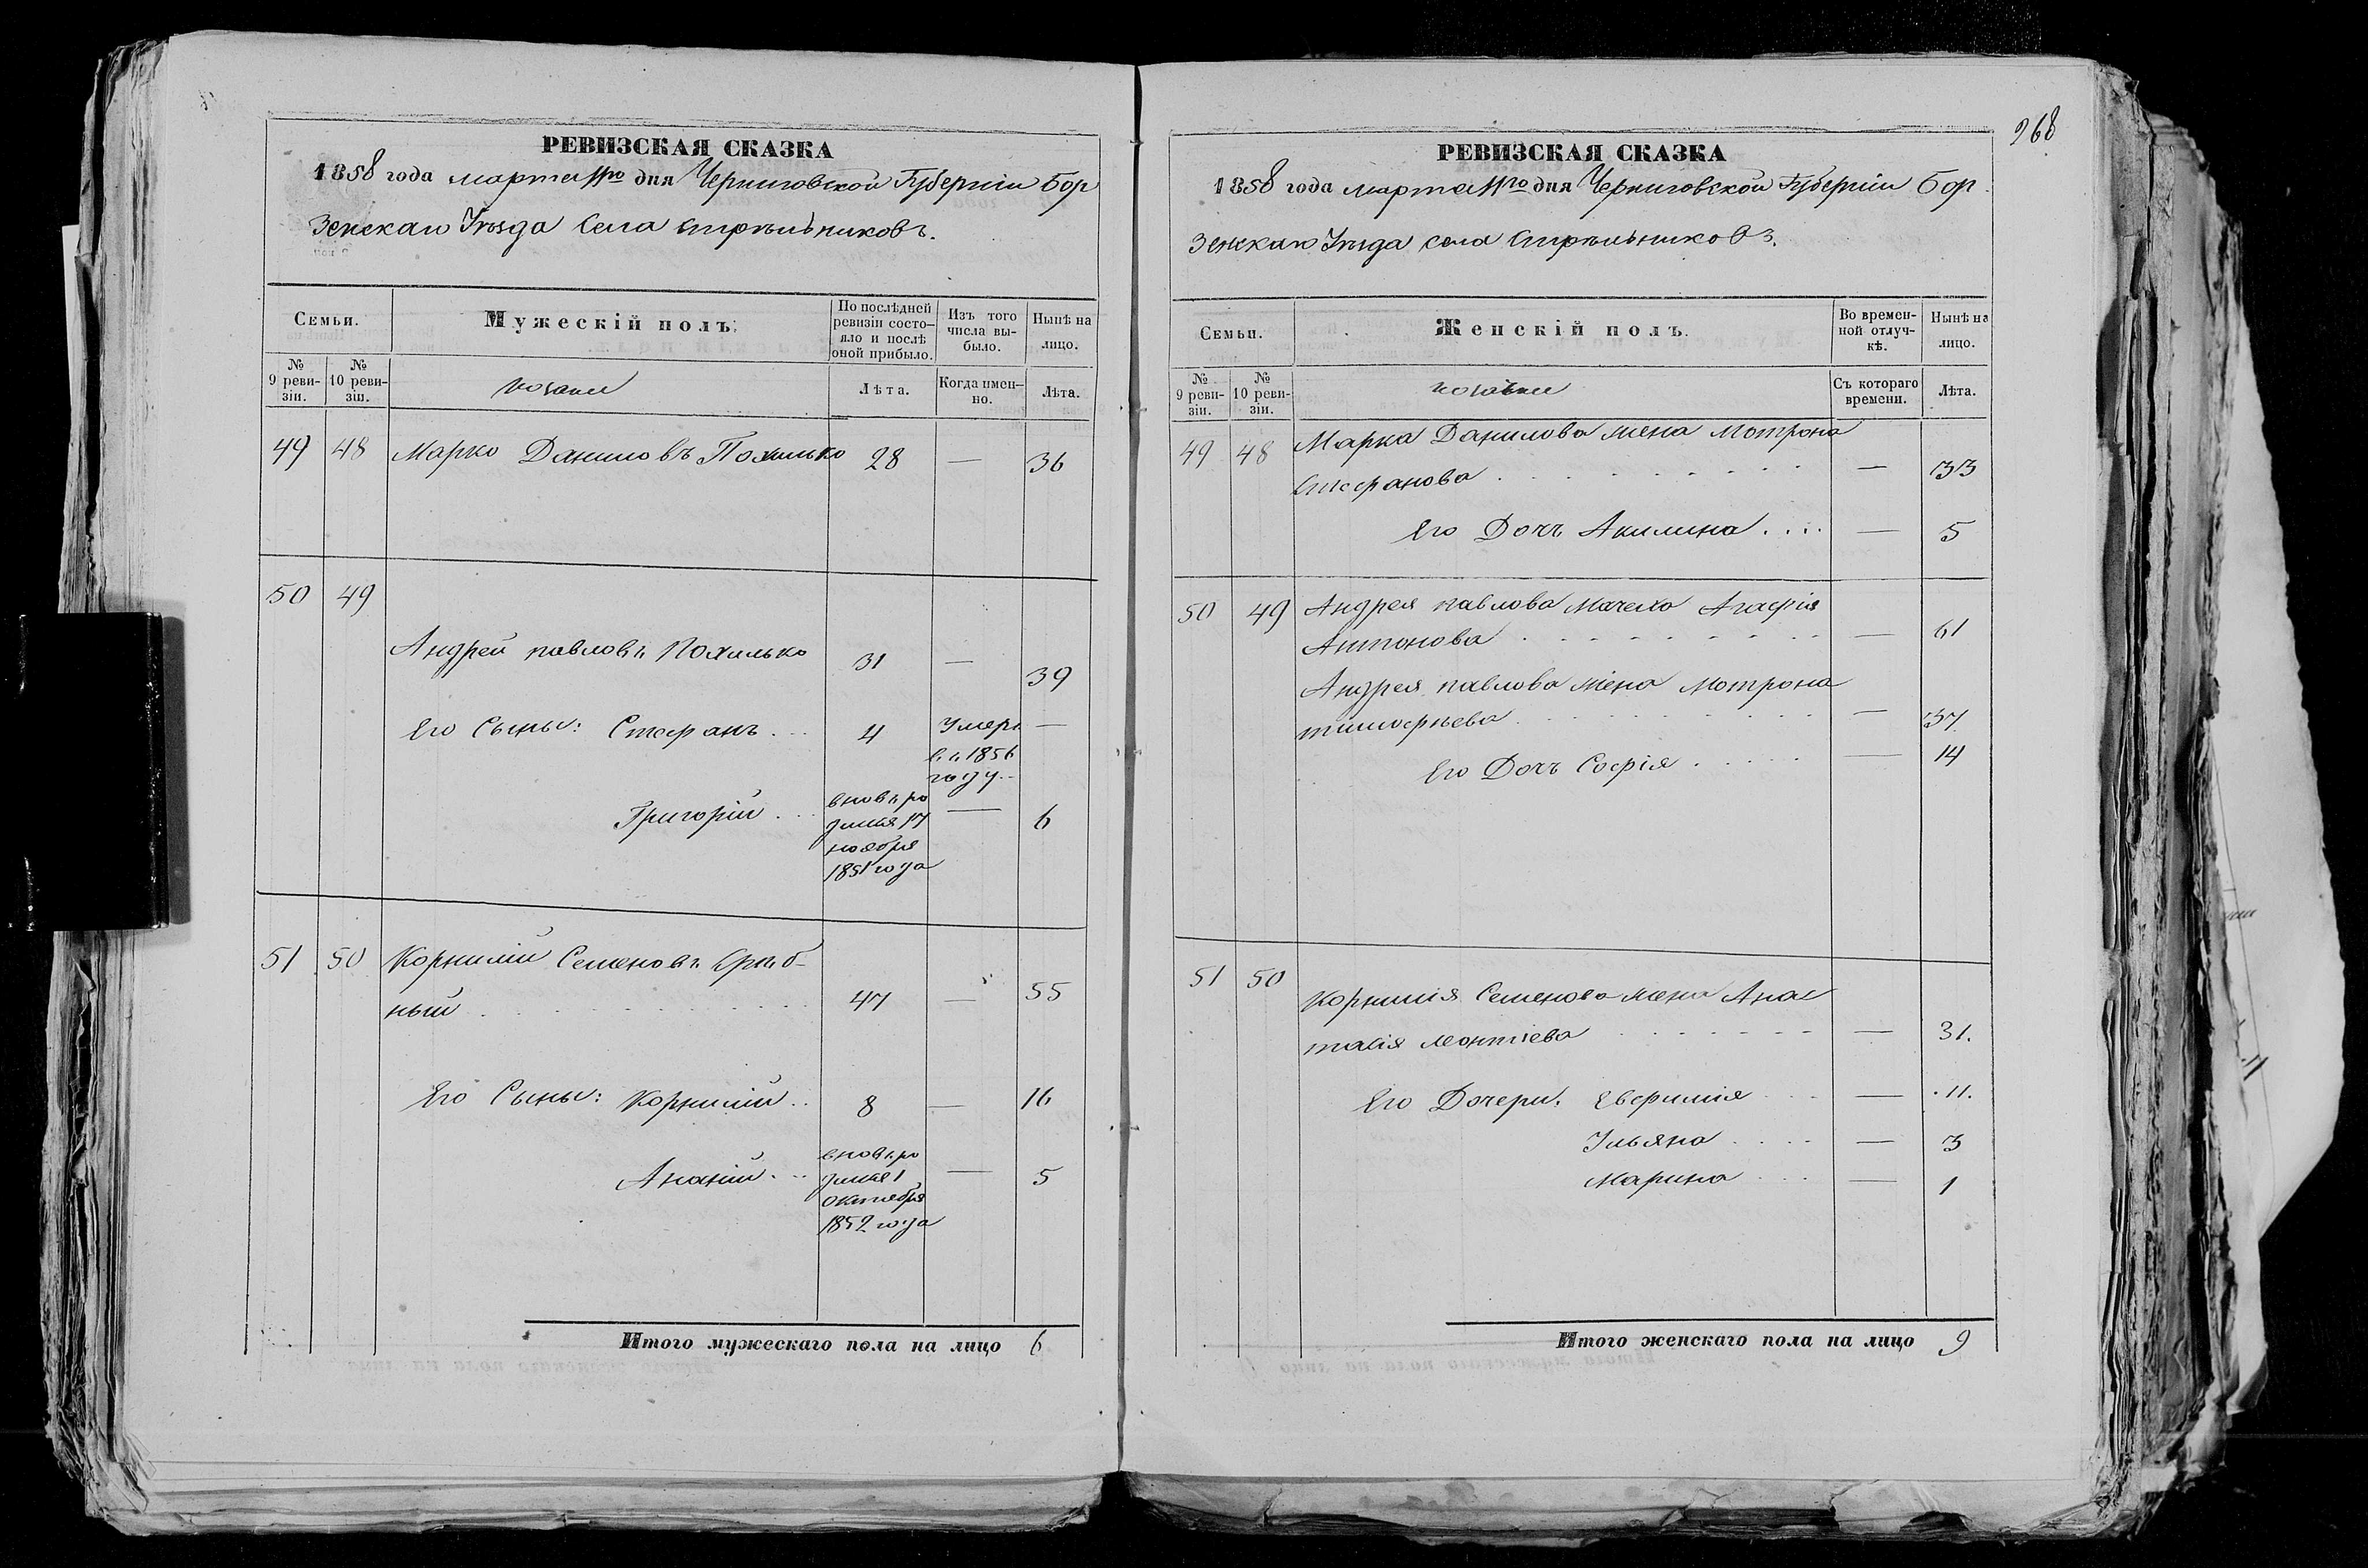 РЕВИЗСКАЯ СКАЗКА
1858 года марта 11го дня Черниговской Губерніи Бор
зенскаго Уѣзда Села Стрѣльниковъ.
Семьи.
Мужескій полъ.
По послѣдней ревизіи состо-
яло и послѣ оной прибыло.
Изъ того числа вы-
было.
Нынѣ на лицо.
№ 9 реви-
зіи.
№ 10 реви-
зіи.
козаки
Лѣта.
Когда имен-
но.
Лѣта.
49 48 Марко Даниловъ Похилько 28 — 36
50 49
Андрей павловъ Похилько 31 — 39
Его Сыны: Стефанъ . . . 4 Умеръ —
въ 1856
году
Григорій . . . вновь ро — 6
дился 17
ноября
1851 года
51 50 Корнилій Семеновъ
ный 47 — 55
Его Сыны: Корнилій . . 8 — 16
Ананій . . . вновь ро — 5
дился 1
октября
1852 года
Итого мужескаго пола на лицо 6
268
РЕВИЗСКАЯ СКАЗКА
1858 года марта 11го дня Черниговской Губерніи Бор
зенскаго Уѣзда села Стрѣльниковъ.
Семьи.
Женскій полъ.
Во времен-
ной отлуч-
кѣ.
Нынѣ на лицо.
№ 9 реви-
зіи.
№ 10 реви-
зіи.
козачки
Съ котораго времени.
Лѣта.
49 48 Марка Данилова жена Мотрона
Стефанова — 33
Его Дочь Акилина . . . — 5
50 49 Андрея павлова мачеха Агафія
Антонова — 61
Андрея павлова жена Мотрона
тимофѣева — 37
Его Дочь Софія — 14
51 50
Корнилія Семенова жена Анас
тасія леонтіева — 31.
Его Дочери: Евфимія — 11.
Ульяна — 3
Марина — 1
Итого женскаго пола на лицо 9